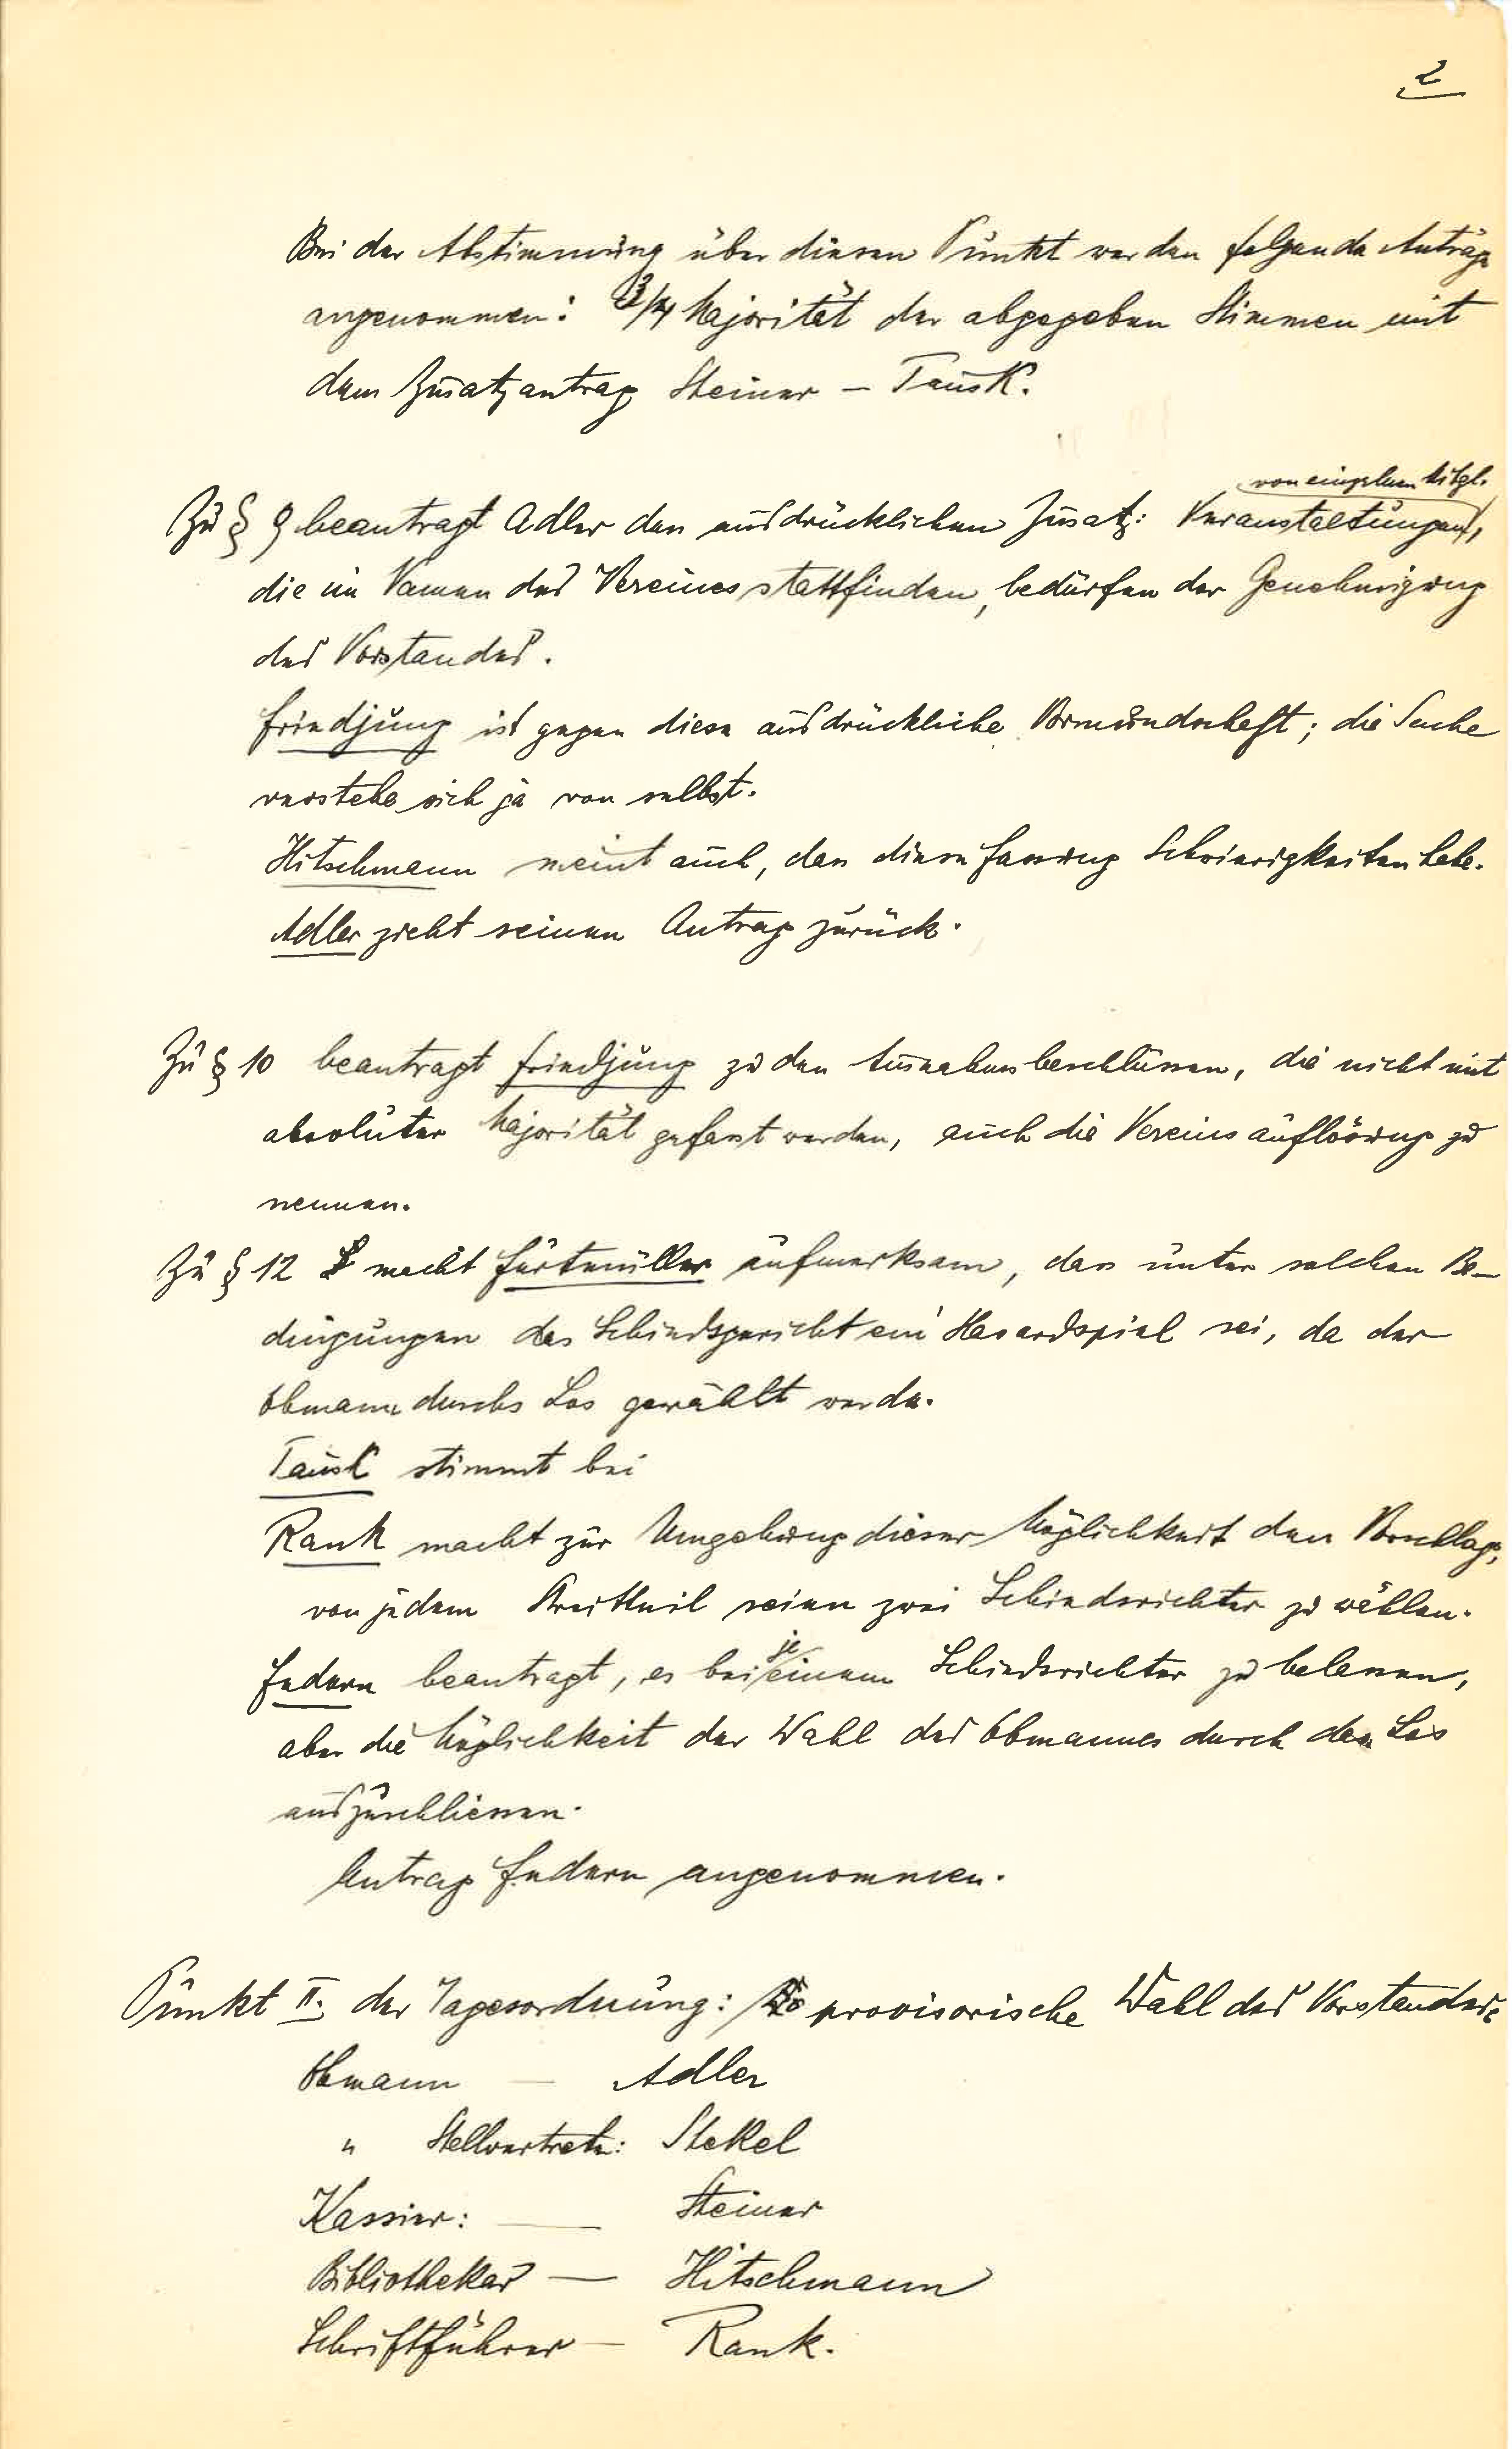 2
Bei der Abstimmung über diesen Punkt werden folgende Anträge
angenommen: 3/4 Majorität der abgegeben Stimmen mit
dem Zusatzantrag Steiner – Tausk.
von einzelnen Mitgl.
Zu § 9 beantragt Adler den ausdrücklichen Zusatz: Veranstaltungen,
die im Namen des Vereines stattfinden, bedürfen der Genehmigung
des Vorstandes.
Friedjung ist gegen diese ausdrückliche Vormundschaft; die Sache
verstehe sich ja von selbst.
Hitschmann meint auch, dass diese Fassung Schwierigkeiten habe.
Adler zieht seinen Antrag zurück.
Zu § 10 beantragt Friedjung zu den Ausnahmsbeschlüssen, die nicht mit
absoluter Majorität gefasst werden, auch die Vereinsauflösung zu
nennen.
Zu § 12 macht Furtmüller aufmerksam, dass unter solchen Be-
dingungen das Schiedsgericht ein Hasardspiel sei, da der
Obmann durchs Los gewählt werde.
Tausk stimmt bei
Rank macht zur Umgehung dieser Möglichkeit den Vorschlag,
von jedem Streitteil seien zwei Schiedsrichter zu wählen.
Federn beantragt, es bei je einem Schiedsrichter zu belassen,
aber die Möglichkeit der Wahl des Obmannes durch das Los
auszuschliessen.
Antrag Federn angenommen.
Punkt II. der Tagesordnung: provisorische Wahl des Vorstandes:
Obmann — Adler
" Stellvertreter: Stekel
Kassier: — Steiner
Bibliothekar — Hitschmann
Schriftführer — Rank.